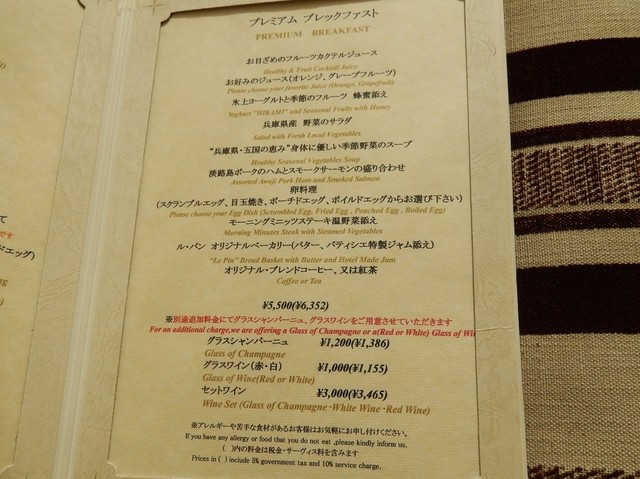 プレミアム ブレックファスト
PREMIUM BREAKFAST
お目ざめのフルーツカクテルジュース
Healthy & Fruit Cocktail Juice
お好みのジュース(オレンジ、グレープフルーツ)
Please choose your favorite Juice (Orange, Grapefruit)
氷上ヨーグルトと季節のフルーツ 蜂蜜添え
Yoghurt "HIKAMI" and Seasonal Fruits with Honey
兵庫県産 野菜のサラダ
Salad with Fresh Local Vegetables
"兵庫県・五国の恵み"身体に優しい季節野菜のスープ
Healthy Seasonal Vegetables Soup
淡路島ポークのハムとスモークサーモンの盛り合わせ
Assorted Awaji Pork Ham and Smoked Salmon
卵料理
(スクランブルエッグ、目玉焼き、ポーチドエッグ、ボイルドエッグからお選び下さい)
Please choose your Egg Dish (Scrambled Egg, Fried Egg , Poached Egg , Boiled Egg)
モーニングミニッツステーキ温野菜添え
Morning Minutes Steak with Steamed Vegetables
ル・パン オリジナルベーカリー(バター、パティシエ特製ジャム添え)
"Le Pin" Bread Basket with Butter and Hotel Made Jam
オリジナル・ブレンドコーヒー、又は紅茶
Coffee or Tea
¥5,500(¥6,352)
※別途追加料金にてグラスシャンパーニュ、グラスワインをご用意させていただきます
For an additional charge,we are offering a Glass of Champagne or a(Red or White) Glass of Win
グラスシャンパーニュ ¥1,200(¥1,386)
Glass of Champagne
グラスワイン(赤・白) ¥1,000(¥1,155)
Glass of Wine(Red or White)
セットワイン ¥3,000(¥3,465)
Wine Set (Glass of Champagne ・White Wine ・Red Wine)
※アレルギーや苦手な食材があるお客様はお気軽にお申し付けください。
If you have any allergy or food that you do not eat ,please kindly inform us.
( )内の料金は税金・サーヴィス料を含みます
Prices in ( ) include 5% government tax and 10% service charge.